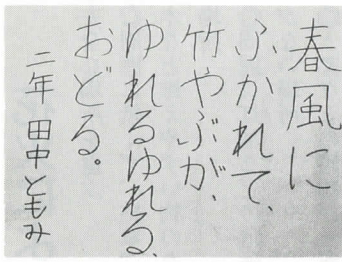 春風に
ふかれて、
竹やぶが、
ゆれるゆれる、
おどる。
二年 田中ともみ